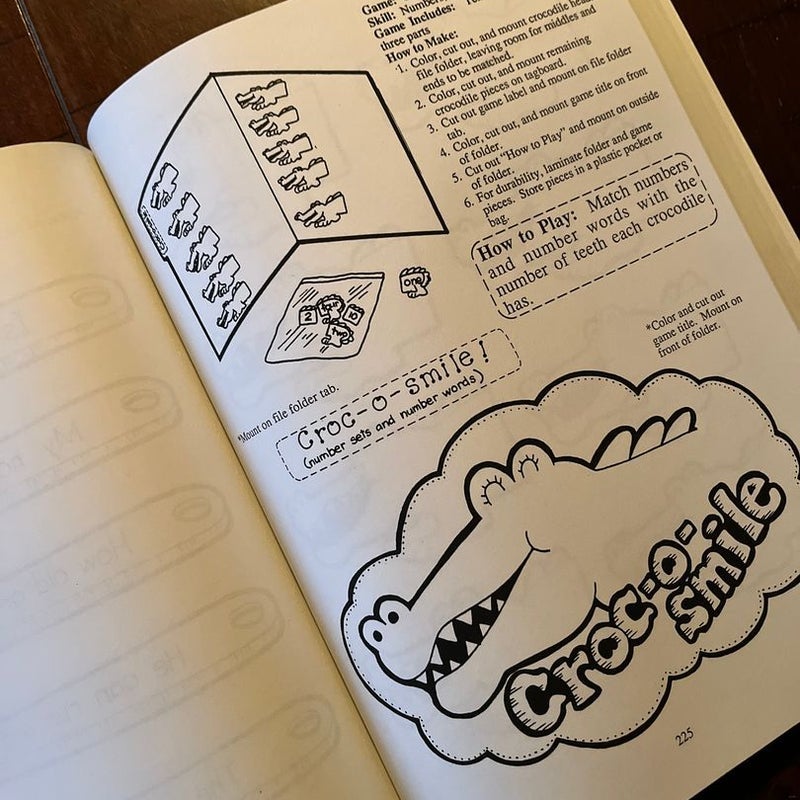 Game:
Skill: Numbers,
Game Includes:
three parts
How to Make:
1. Color, cut out, and mount crocodile heads
file folder, leaving room for middles and
ends to be matched.
2. Color, cut out, and mount remaining
crocodile pieces on tagboard.
3. Cut out game label and mount on file folder
tab.
4. Color, cut out, and mount game title on front
of folder.
5. Cut out "How to Play" and mount on outside
of folder.
6. For durability, laminate folder and game
pieces. Store pieces in a plastic pocket or
bag.
How to Play: Match numbers
and number words with the
number of teeth each crocodile
has.
one
2
four
10
two
*Color and cut out
game title. Mount on
front of folder.
*Mount on file folder tab.
Croc-o-smile!
(number sets and number words)
Croc-o-
smile
225